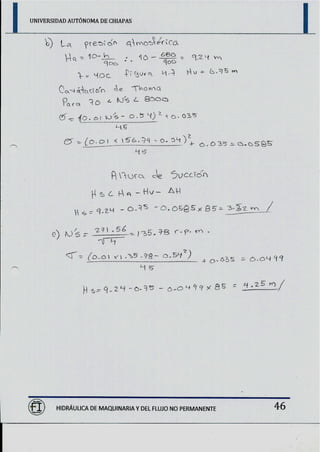 UNIVERSIDAD AUTÓNOMA DE CHIAPAS
b) La presión atmosférica
Ha = 10 - h/900 ∴ 10 - 680/900 = 9.24 m
t = 40C figura 4.7 Hv = 0.75 m
Cavitación de Thoma
Para 70 < Ns < 800
σ = (0.01 Ns - 0.54)² + 0.035
45
σ = (0.01 x 156.79 - 0.54)² + 0.035 = 0.0585
45
Altura de Succión
Hs < HA - Hv - ΔH
Hs = 9.24 - 0.75 - 0.0585 x 85 = 3.52 m /
c) Ns = 271.56 / √4 = 135.78 r.p.m.
σ = (0.01 x 1.35.78 - 0.54²) + 0.035 = 0.0499
45
Hs = 9.24 - 0.75 - 0.0499 x 85 = 4.25 m /
HIDRÁULICA DE MAQUINARIA Y DEL FLUJO NO PERMANENTE
46